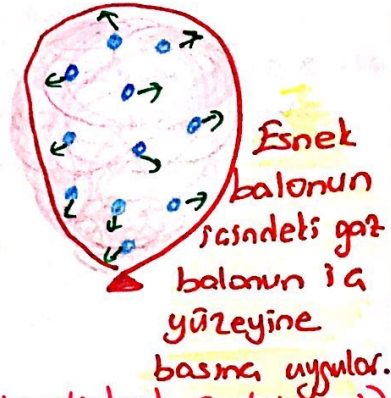 Esnek
balonun
içindeki gaz
balonun iç
yüzeyine
basınç uygular.